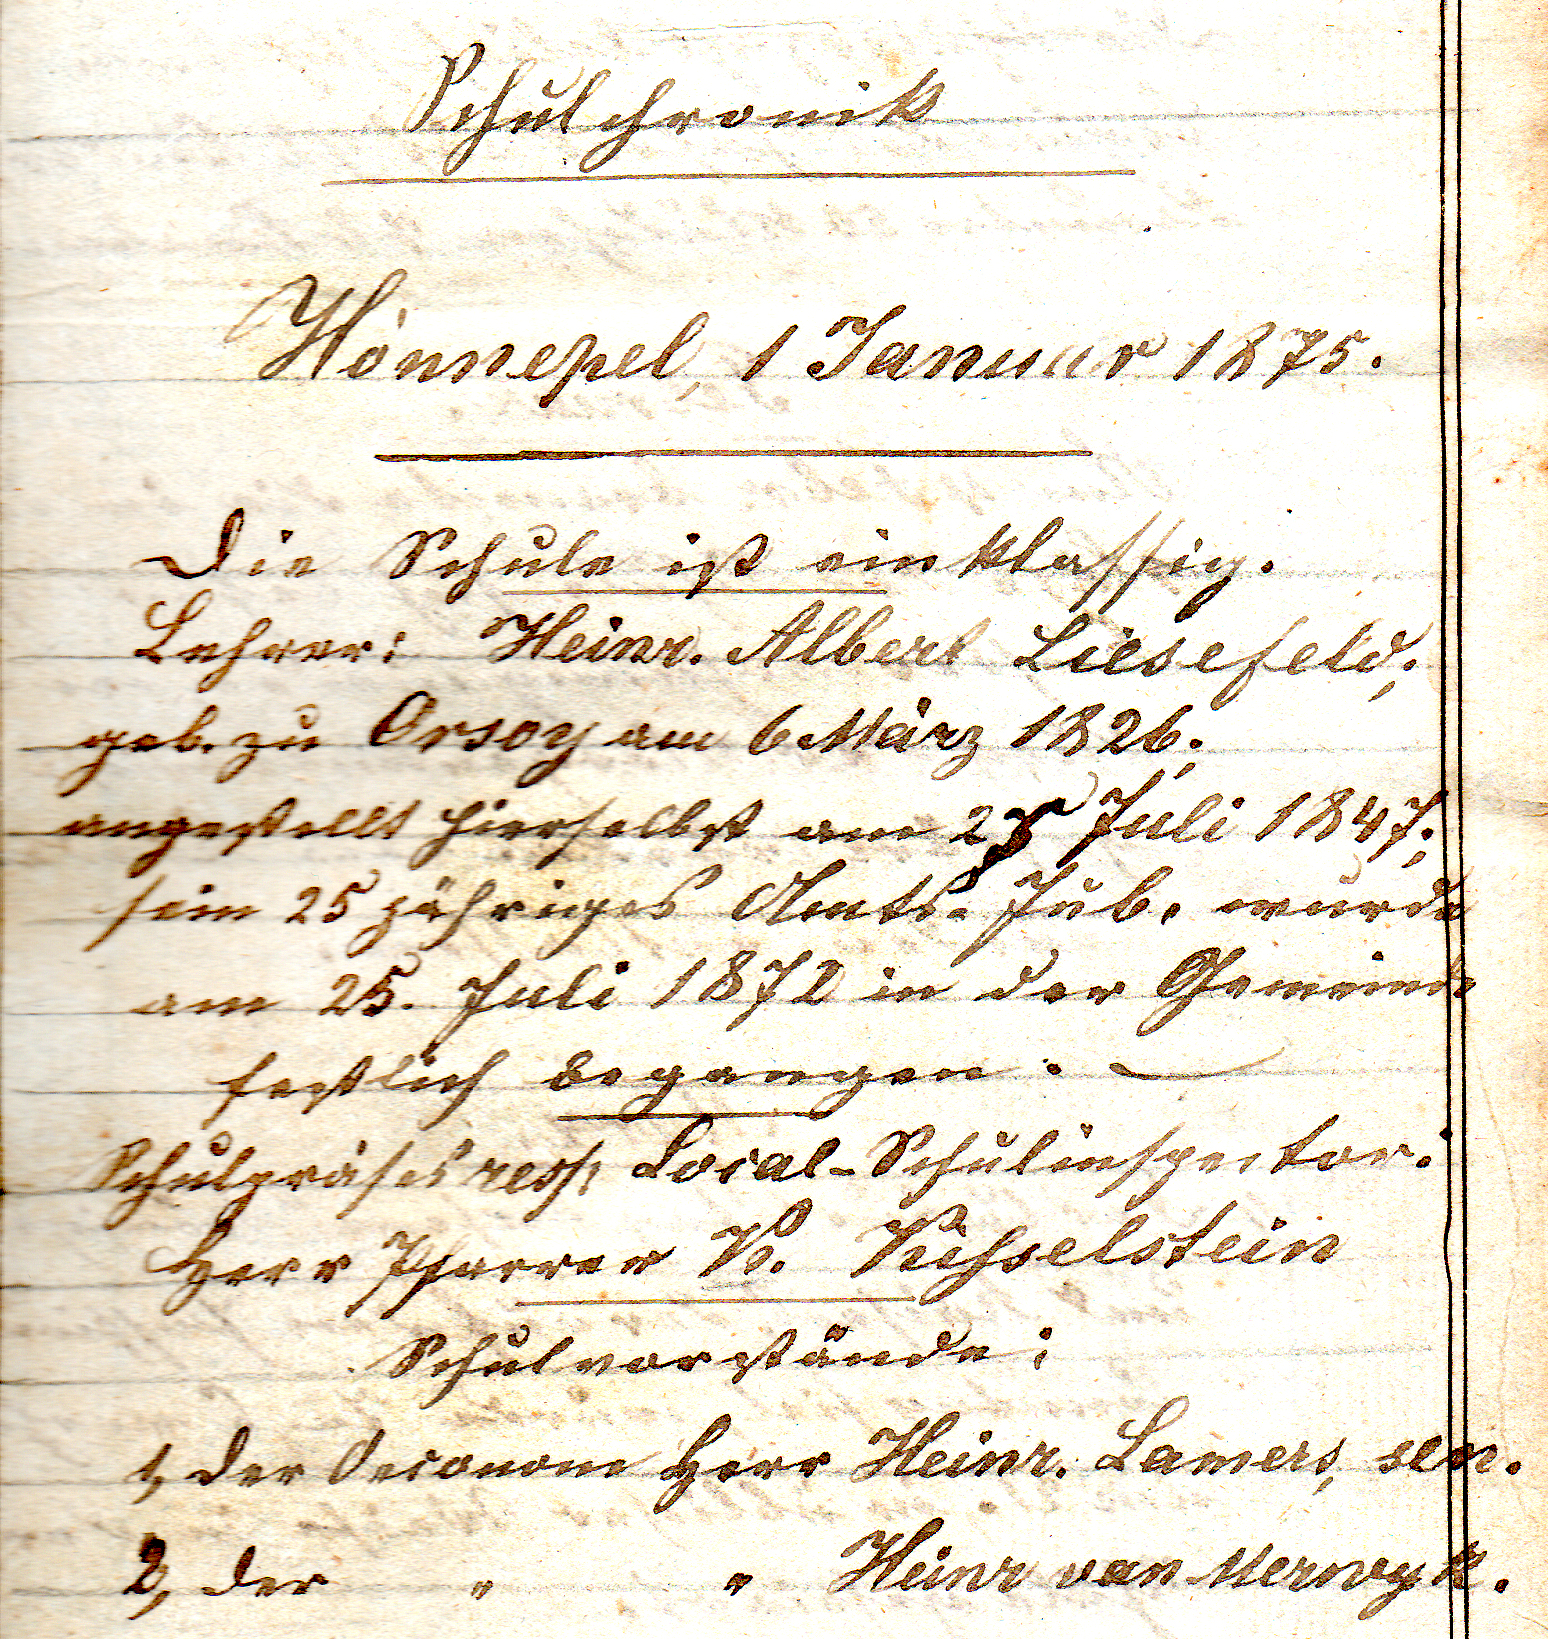 Schulchronik
Hönnepel, 1 Januar 1875.
Die Schule ist einklassig.
Lehrer: Heinr. Albert Liesefeld,
geb. zu Orsoy am 6 März 1826.
angestellt hierselbst am 25 Juli 1847;
sein 25 jähriges Amts-Jub. wurde
am 25. Juli 1872 in der Gemeinde
festlich begangen. —
Schulpräses resp. Local-Schulinspector:
Herr Pfarrer W.
Schulvorstände:
1, der Oeconom Herr Heinr. Lamers, sen.
2, der " " Heinr van Merwyk.